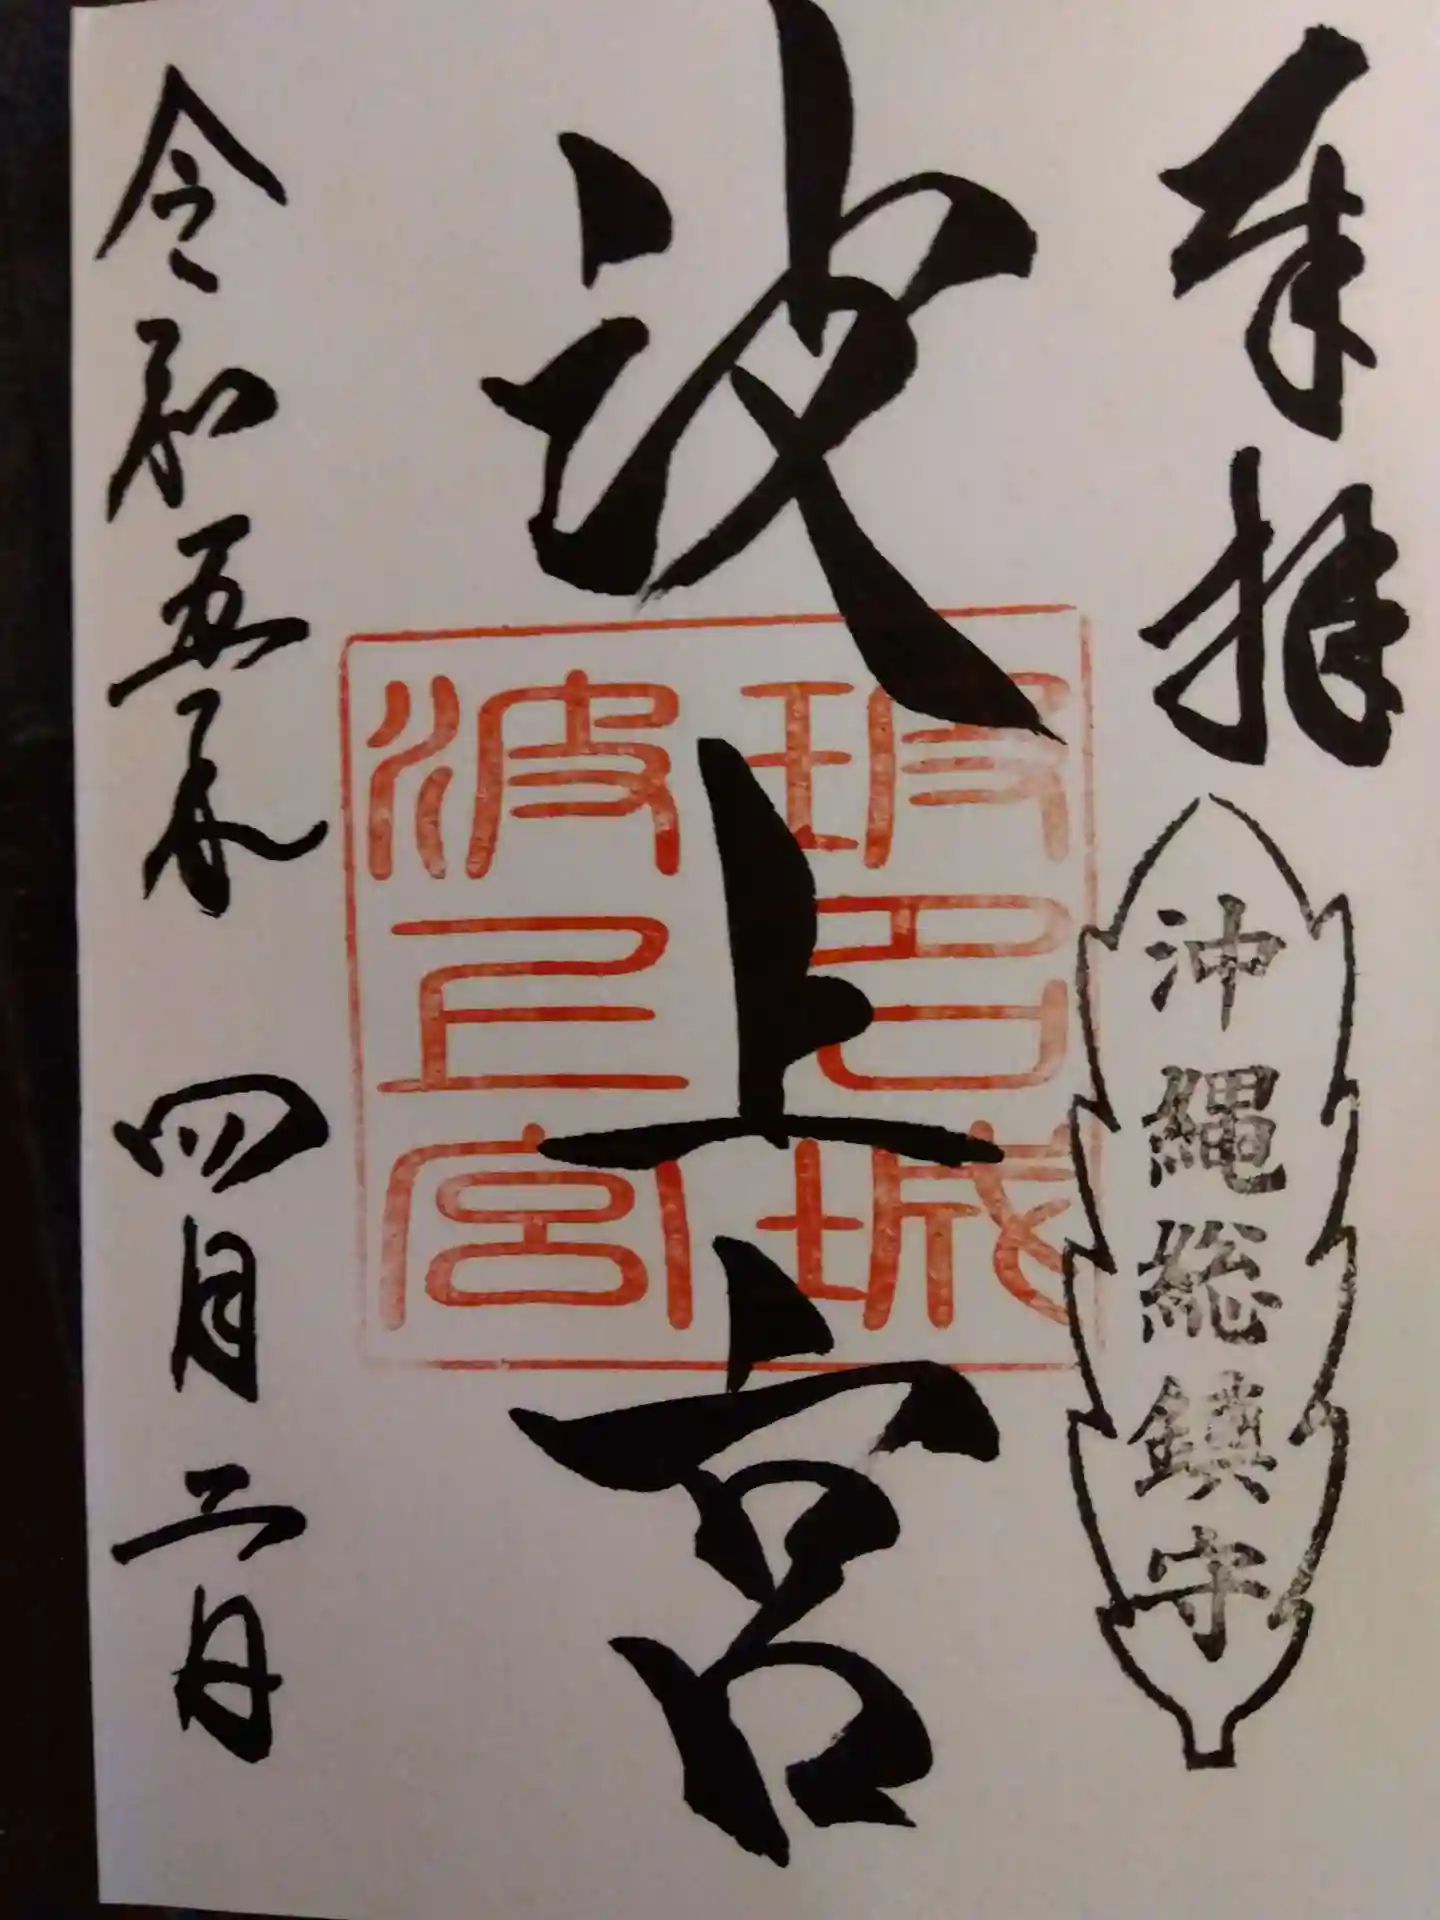 奉拝
沖縄総鎮守
波上宮
玻名城
波上宮
令和五年 四月二日